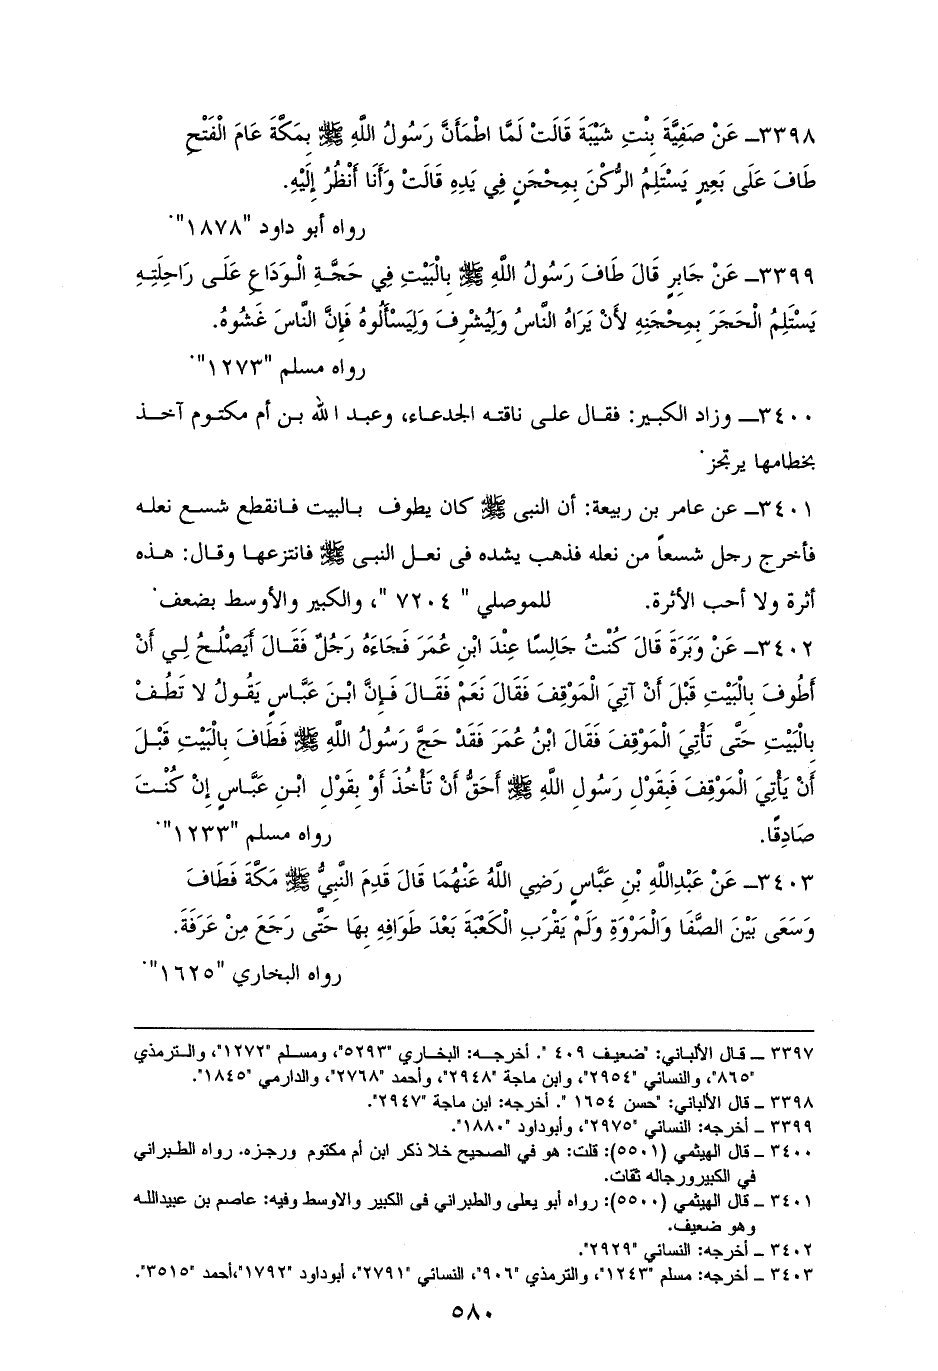 ٣٣٩٨ـ عَنْ صَفِيَّةَ بِنْتِ شَيْبَةَ قَالَتْ لَمَّا اطْمَأَنَّ رَسُولُ اللَّهِ ﷺ بِمَكَّةَ عَامَ الْفَتْحِ
طَافَ عَلَى بَعِيرٍ يَسْتَلِمُ الرُّكْنَ بِمِحْجَنٍ فِي يَدِهِ قَالَتْ وَأَنَا أَنْظُرُ إِلَيْهِ.
رواه أبو داود "١٨٧٨".
٣٣٩٩ـ عَنْ جَابِرٍ قَالَ طَافَ رَسُولُ اللَّهِ ﷺ بِالْبَيْتِ فِي حَجَّةِ الْوَدَاعِ عَلَى رَاحِلَتِهِ
يَسْتَلِمُ الْحَجَرَ بِمِحْجَنِهِ لأَنْ يَرَاهُ النَّاسُ وَلِيُشْرِفَ وَلِيَسْأَلُوهُ فَإِنَّ النَّاسَ غَشُوهُ.
رواه مسلم "١٢٧٣".
٣٤٠٠ـ وزاد الكبير: فقال على ناقته الجدعاء، وعبد الله بن أم مكتوم آخذ
بخطامها يرتجز.
٣٤٠١ـ عن عامر بن ربيعة: أن النبى ﷺ كان يطوف بالبيت فانقطع شسع نعله
فأخرج رجل شسعاً من نعله فذهب يشده فى نعل النبى ﷺ فانتزعها وقال: هذه
أثرة ولا أحب الأثرة. للموصلي " ٧٢٠٤ "، والكبير والأوسط بضعف.
٣٤٠٢ـ عَنْ وَبَرَةَ قَالَ كُنْتُ جَالِسًا عِنْدَ ابْنِ عُمَرَ فَجَاءَهُ رَجُلٌ فَقَالَ أَيَصْلُحُ لِي أَنْ
أَطُوفَ بِالْبَيْتِ قَبْلَ أَنْ آتِيَ الْمَوْقِفَ فَقَالَ نَعَمْ فَقَالَ فَإِنَّ ابْنَ عَبَّاسٍ يَقُولُ لا تَطُفْ
بِالْبَيْتِ حَتَّى تَأْتِيَ الْمَوْقِفَ فَقَالَ ابْنُ عُمَرَ فَقَدْ حَجَّ رَسُولُ اللَّهِ ﷺ فَطَافَ بِالْبَيْتِ قَبْلَ
أَنْ يَأْتِيَ الْمَوْقِفَ فَبِقَوْلِ رَسُولِ اللَّهِ ﷺ أَحَقُّ أَنْ تَأْخُذَ أَوْ بِقَوْلِ ابْنِ عَبَّاسٍ إِنْ كُنْتَ
صَادِقًا. رواه مسلم "١٢٣٣".
٣٤٠٣ـ عَنْ عَبْدِاللَّهِ بْنِ عَبَّاسٍ رَضِي اللَّهُ عَنْهُمَا قَالَ قَدِمَ النَّبِيُّ ﷺ مَكَّةَ فَطَافَ
وَسَعَى بَيْنَ الصَّفَا وَالْمَرْوَةِ وَلَمْ يَقْرَبِ الْكَعْبَةَ بَعْدَ طَوَافِهِ بِهَا حَتَّى رَجَعَ مِنْ عَرَفَةَ.
رواه البخاري "١٦٢٥".
٣٣٩٧ ـ قال الألباني: "ضعيف ٤٠٩ ". أخرجه: البخاري "٥٢٩٣"، ومسلم "١٢٧٢"، والترمذي
"٨٦٥"، والنسائي "٢٩٥٤"، وابن ماجة "٢٩٤٨"، وأحمد "٢٧٦٨"، والدارمي "١٨٤٥".
٣٣٩٨ ـ قال الألباني: "حسن ١٦٥٤ ". أخرجه: ابن ماجة "٢٩٤٧".
٣٣٩٩ ـ أخرجه: النسائي "٢٩٧٥"، وأبوداود "١٨٨٠".
٣٤٠٠ ـ قال الهيثمي (٥٥٠١): قلت: هو في الصحيح خلا ذكر ابن أم مكتوم ورجزه. رواه الطبراني
في الكبيرورجاله ثقات.
٣٤٠١ ـ قال الهيثمي (٥٥٠٠): رواه أبو يعلى والطبراني فى الكبير والاوسط وفيه: عاصم بن عبيدالله
وهو ضعيف.
٣٤٠٢ ـ أخرجه: النسائي "٢٩٢٩".
٣٤٠٣ ـ أخرجه: مسلم "١٢٤٣"، والترمذي "٩٠٦"، النسائي "٢٧٩١"، أبوداود "١٧٩٢"،أحمد "٣٥١٥".
٥٨٠